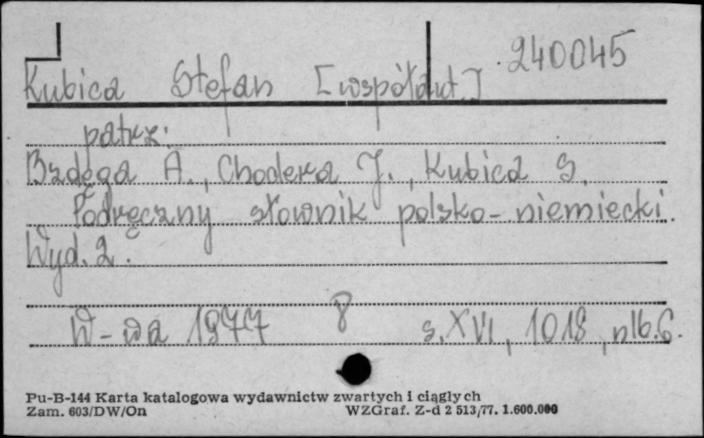 240045
Kubica Stefan [współaut.]
patrz.
Bzdęga A., Chodera J., Kubica S.
Podręczny słownik polsko-niemiecki.
Wyd. 2.
W-wa 1977 8 s. XVI, 1018, nlb. 6.
Pu-B-144 Karta katalogowa wydawnictw zwartych i ciągłych
Zam. 603/DW/On WZGraf. Z-d 2 513/77. 1.600.000